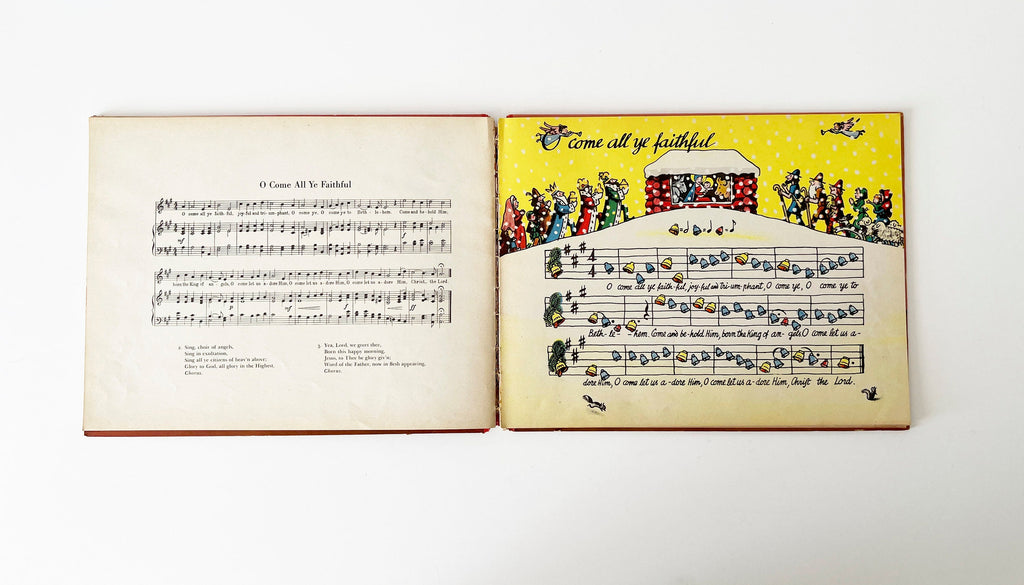 O Come All Ye Faithful
O come all ye faith-ful, joy-ful and tri-um-phant, O come ye, O come ye to Beth - le-hem. Come and be-hold Him,
born the King of an - gels, O come let us a-dore Him, O come let us a-dore Him, O come let us a-dore Him, Christ, the Lord.
2. Sing, choir of angels,
Sing in exultation,
Sing all ye citizens of heav'n above;
Glory to God, all glory in the Highest,
Chorus.
3. Yea, Lord, we greet thee,
Born this happy morning,
Jesus, to Thee be glory giv'n;
Word of the Father, now in flesh appearing,
Chorus.
O come all ye faithful
4
4
O come all ye faith-ful, joy-ful and tri-um-phant, O come ye, O come ye to
Beth-le-hem, Come and be-hold Him, born the King of an-gels O come let us a-
dore Him, O come let us a-dore Him, O come let us a-dore Him, Christ the Lord.